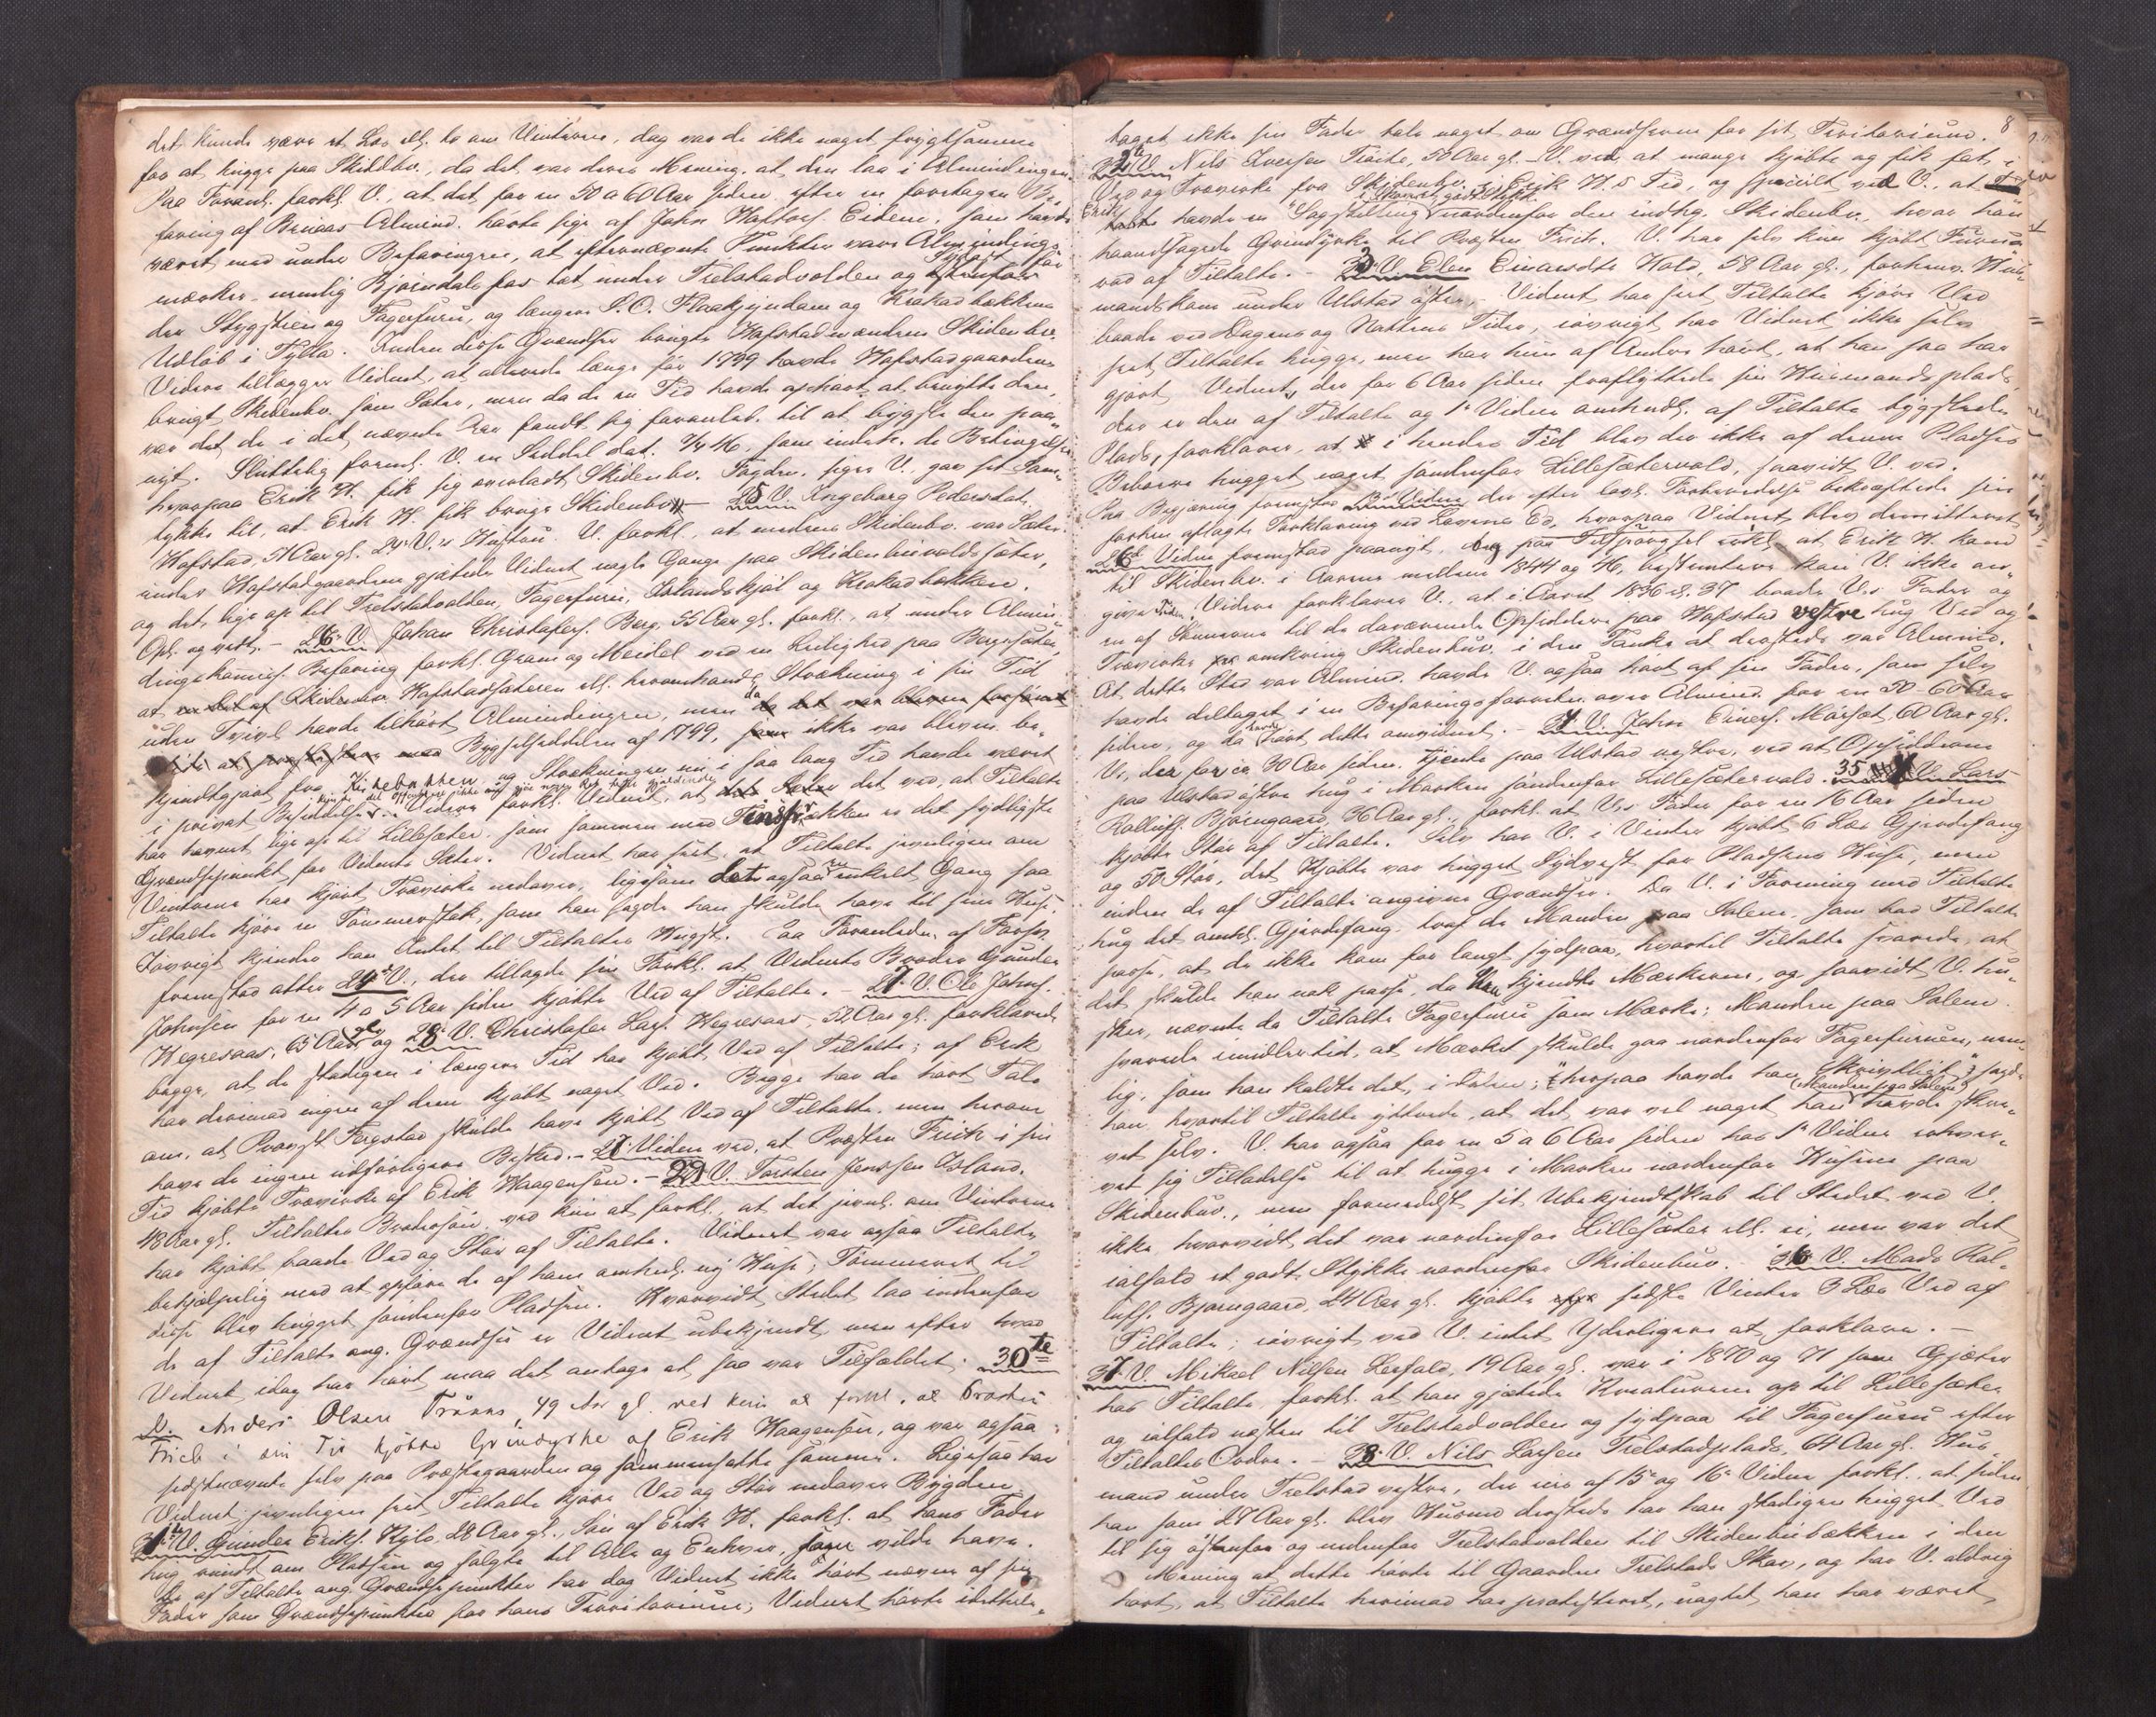 det kunde være et Læs ell. to om Vinteren, dog var de ikke noget frygtsomme
for at hugge paa Skidbv., da det var deres Mening, at den laa i Almindingen.
Paa Foranl. forkl. V., at det for en 50 a 60 Aar siden efter en foretagen Be-
faring af Almind. hørte sige af John Eidene, som havde
været med under Befaringen, at efternævnte Punkter vare Almindings
mærker nemlig Bjørndals fos tæt under Trelstadvolden og
der Stygtien og Fagerfuru, og længere S.O. og Krakadbækkens
Udløb i Fylla. Inden disse Grændser brugte Hafstadmændene Skidenbv.
Videre tillægger Vidnet, at allerede længe før 1799 havde Hafstadgaardene
brugt Skidenbv. som Sæter, men da de en Tid havde ophørt at benytte den,
var det de i det nævnte Aar fandt sig foranled. til at bygsle den paa-
nyt. Sluttelig freml. V. en Seddel dat. som indeh. de Betingelser
hvorpaa Erik H. fik sig overladt Skidenbv. Fogden, siger V., gav sit Sam-
tykke til, at Erik H. fik bruge Skidenbv. – 25 V. Ingeborg Pedersdat.
Hafstad, 51 Aar gl. 24 V.s Hustru. V. forkl., at medens Skidenbv. var Sæter
under Hafstadgaardene gjætede Vidnet nogle Gange paa Skidenbuvolds sæter,
og det lige op til Trelstadvolden, Fagerfuru, Islandskjøl og Krakadbækken.
Opl. og vedt. – 26 V. Johan Christofers. Berg, 55 Aar gl. forkl., at under Almin-
dingskommis. Befaring forkl. Gram og Meidel ved en Leilighed paa
at Hafstadsæteren ell. Strækning i sin Tid
uden Tvivl havde tilhørt Almindingen, men da
Bygselseddelen af 1799, ikke var bleven be-
kjendtgjort fra og Strækningen nu i saa lang Tid havde været
i privat Besiddelse, Videre forkl. Vidnet, at det ved, at Tiltalte
har havnet lige op til Lillesæter, som sammen med er det sydligste
Grændsepunkt for Vidnets Sæter. Vidnet har seet, at Tiltalte jevnligen om
Vinteren har kjørt Trævirke nedover, ligesom det ogsaa en enkelt Gang saa
Tiltalte kjøre en Tømmerstok, som han sagde han skulde have til sine Huse.
Iøvrigt kjender han Intet til Tiltaltes Hugst. Paa Foranledn. af Forsv.
fremstod atter 24 V., der tillagde sin Forkl. at Vidnets Broder Gunder
Johnsen for en 4 a 5 Aar siden kjøbte Ved af Tiltalte. – 27 V. Ole Johns.
Hegresaas, 65 Aar gl. og 28 V. Christofer Lars. Hegresaas, 52 Aar gl. forklarede
begge, at de stadigen i længere Tid har kjøbt Ved af Tiltalte; af Erik
har derimod ingen af dem kjøbt noget Ved. Begge har de hørt Tale
om, at Provst Fergstad skulde have kjøbt Ved af Tiltalte, men herom
have de ingen udførligere Besked. – 27 Vidne ved, at Præsten Frich i sin
Tid kjøbte Trævirke af Erik Haagensen. – 29 V. Torsten Jenssen Island,
48 Aar gl. Tiltaltes Brodersøn, ved kun at forkl., at det jevnl. om Vinteren
har kjøbt baade Ved og Stør af Tiltalte. Vidnet var ogsaa Tiltalte
behjælpelig med at opføre de af ham omhndl. ny Huse; Tømmeret til
disse blev hugget søndenfor Pladsen. Hvorvidt Stedet laa indenfor
de af Tiltalte ang. Grændser er Vidnet ubekjendt, men efter hvad
Vidnet idag har hørt, maa det antage at saa var Tilfældet. 30te
V. Anders Olsen 49 Aar gl. ved kun at forkl. at Præsten
Frich i sin Tid kjøbte Grindvirke af Erik Haagensen, og var ogsaa
sidstnævnte selv paa Præstegaarden og sammensatte samme. Ligesaa har
Vidnet jevnligen seet Tiltalte kjøre Ved og Stør nedover Bygden.
31te V. Gunder Eriks. Kylo, 28 Aar gl., Søn af Erik H. forkl. at hans Fader
hug rundt om Pladsen og solgte til Alle og Enhver, som vilde have.
De af Tiltalte ang. Grændsepunkter har dog Vidnet ikke hørt nævne af sin
Fader som Grændsepunkter for hans Territorium; Vidnet hørte idethele-
8
taget ikke sin Fader tale noget om Grændserne for sit Territorium.
32te V. Nils Iversen 50 Aar gl. V. ved, at mange kjøbte og fik fat i
Ved og Trævirke fra Skidenbv. i Erik H.s Tid, og specielt ved V., at
Erik havde en "Sagstelling" nordenfor den indhg. Skidenbv., hvor han
haandsagede Grindvirke til Præsten Frich. V. har selv kun kjøbt
ved af Tiltalte. – 33 V. Elen Einarsdtr Hald, 58 Aar gl., forhenv. Hus-
mandskone under Ulstad østre, Vidnet har seet Tiltalte kjøre Ved
baade ved Dagens og Nattens Tider, iøvrigt har Vidnet ikke selv
seet Tiltalte hugge, men har kun af Andre hørt, at han saa har
gjort. Vidnet, der for 6 Aar siden fraflyttede sin Husmandsplads,
der er den af Tiltalte og 1 Vidne omhndl. af Tiltalte bygslede
Plads, forklarer, at i hendes Tid blev der ikke af denne Pladses
Beboere hugget noget søndenfor Lillesætervold, saavidt V. ved.
Paa Begjæring fremstod 13 Vidne der efter lovl. Forberedelse bekræftede sin
forhen aflagte Forklaring ved Lavens Ed, hvorpaa Vidnet blev demitteret
26 Vidne fremstod paanyt, og paa Tilspørgsel at Erik H. kom
til Skidenbv. i Aarene mellem 1844 og 46, bestemtere kan V. ikke an-
give Tiden. Videre forklarer V., at i Aaret 1836 a 37 baade V.s Fader og
en af Sønnerne til de daværende Opsiddere paa Hafstad vestre hug Ved og
Trævirke omkring Skidenbuv. i den Tanke at dersteds var Almind.
At dette Sted var Almind. havde V. ogsaa hørt af sin Fader, som selv
havde deltaget i en Befaringsforretn. over Almind. for en 50-60 Aar
siden, og da havde hørt dette omvidnet. – 34 V. John Einars. 60 Aar gl.
V., der for ca 30 Aar siden tjente paa Ulstad vestre, ved at Opsidderne
paa Ulstad østre hug i Marken søndenfor Lillesætervold. 35 V. Lars
Rollefs. Bjørngaard, 36 Aar gl., forkl. at V.s Fader for en 16 Aar siden
kjøbte Stør af Tiltalte. Selv har V. i Vinter kjøbt 6 Læs Gjærdefang
og 50 Stør, det Kjøbte var hugget Sydvest for Pladsens Huse, men
inden de af Tiltalte angivne Grændser. Da V. i Forening med Tiltalte
hug det omhl. Gjærdefang traf de Manden paa Solem, som bad Tiltalte
passe, at de ikke kom for langt sydpaa, hvortil Tiltalte svarede, at
det skulde han nok passe, da han kjendte Mærkerne, og saavidt V. hu-
sker, nævnte da Tiltalte Fagerfuru som Mærke; Manden paa Solem
svarede imidlertid, at Mærket skulde gaa nordenfor Fagerfuruen, nem-
lig, som han kaldte det, i "herpaa havde han Skriftligt", sagde
han, hvortil Tiltalte ytrede, at det var vel noget han (Manden paa Solem) havde skre-
vet selv. V. har ogsaa for en 5 a 6 Aar siden hos 1 Vidne erhver-
vet sig Tilladelse til at hugge i Marken nordenfor Husene paa
Skidenbuv., men formedelst sit Ubekjendtskab til Stedet ved V.
ikke, hvorvidt det var nordenfor Lillesæter ell. ei, men var det
ialfald et godt Stykke nordenfor Skidenbuv. 36 V. Mads Rol-
lefs. Bjørngaard, 24 Aar gl. kjøbte sidste Vinter 3 Læs Ved af
Tiltalte; iøvrigt ved V. intet Yderligere at forklare. –
37 V. Mikael Nilsen Lerfald, 19 Aar gl. var i 1870 og 71 som Gjæter
hos Tiltalte, forkl. at han gjætede Kreaturene op til Lillesæter
og ialfald næsten til Trelstadvolden og sydpaa til Fagerfuru efter
Tiltaltes Ordre. – 38 V. Nils Larsen Trelstadplads, 64 Aar gl. Hus-
mand under Trelstad vestre, der eies af 15 og 16 Vidne forkl., at siden
han som 27 Aar gl. blev Husmd dersteds har han stadigen hugget Ved
til sig østenfor og nedenfor Trelstadvolden til Skidenbubækken i den
Mening at dette hørte til Gaarden Trelstads Skov, og har V. aldrig
hørt, at Tiltalte herimod har protesteret, uagtet han har været